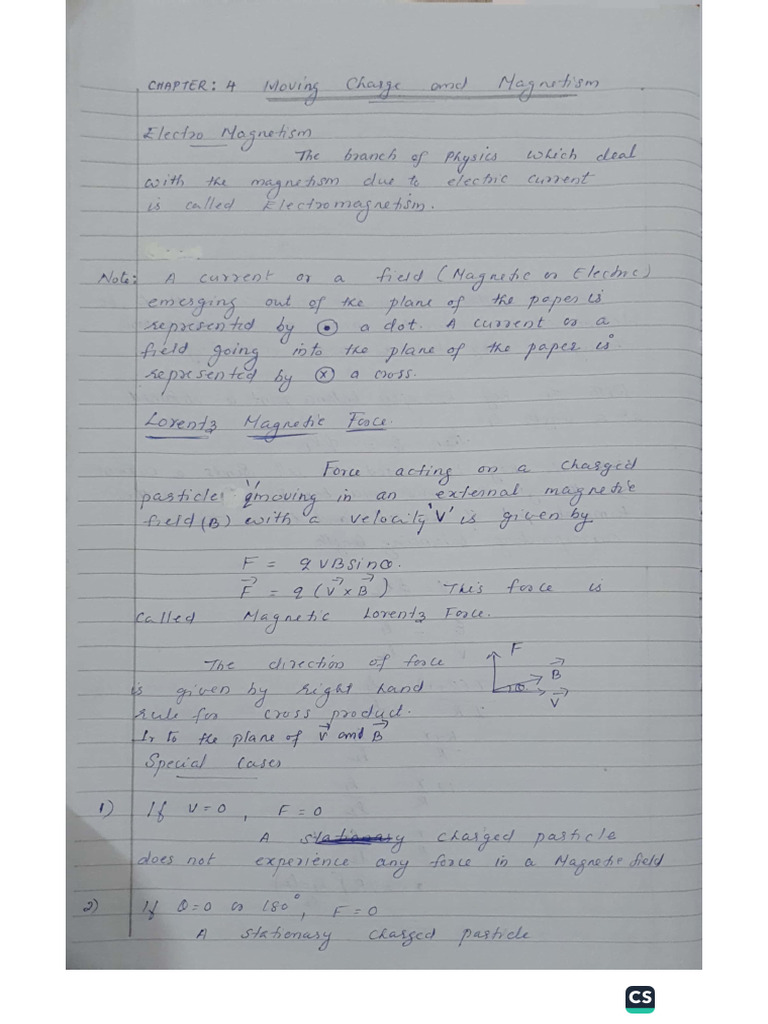 CHAPTER: 4 Moving Charge and Magnetism
Electro Magnetism
The branch of Physics which deal
with the magnetism due to electric current
is called Electromagnetism.
Note: A current or a field (Magnetic or Electric)
emerging out of the plane of the paper is
represented by ⊙ a dot. A current or a
field going into the plane of the paper is
represented by ⊗ a cross.
Lorentz Magnetic Force.
Force acting on a charged
particle 'q' moving in an external magnetic
field (B) with a velocity 'V' is given by
F = qVBsinθ.
F⃗ = q (V⃗ × B⃗) This force is
called Magnetic Lorentz Force.
The direction of force
is given by right hand
rule for cross product.
⊥r to the plane of V⃗ and B⃗
F
B⃗
θ
V⃗
Special Cases
1) If V=0, F=0
A stationary charged particle
does not experience any force in a Magnetic field
2) If θ=0 or 180°, F=0
A stationary charged particle
CS